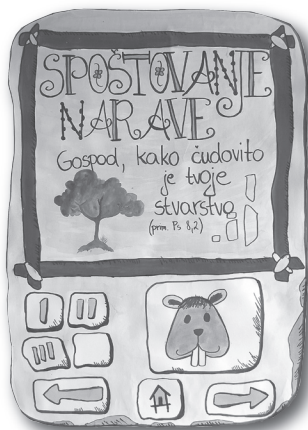 SPOŠTOVANJE
NARAVE
Gospod, kako čudovito
je tvoje
stvarstvo
(prim. Ps 8,2)
I II
III